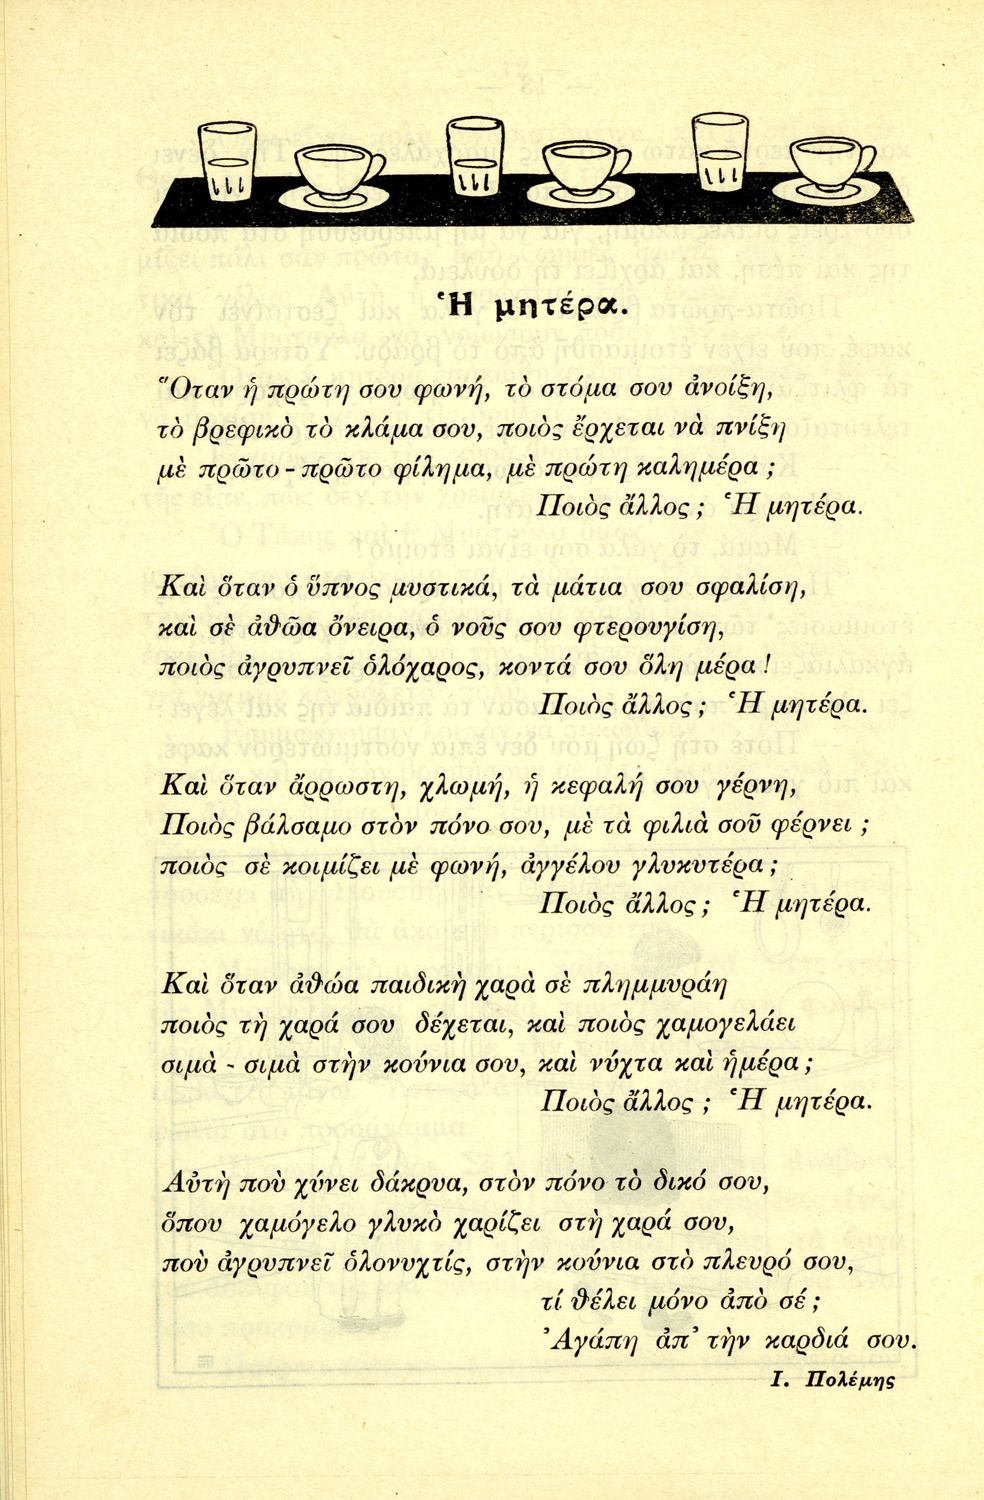 Ἡ μητέρα.
Ὅταν ἡ πρώτη σου φωνή, τὸ στόμα σου ἀνοίξη,
τὸ βρεφικὸ τὸ κλάμα σου, ποιὸς ἔρχεται νὰ πνίξη
μὲ πρῶτο - πρῶτο φίλημα, μὲ πρώτη καλημέρα ;
Ποιὸς ἄλλος ; Ἡ μητέρα.
Καὶ ὅταν ὁ ὕπνος μυστικά, τὰ μάτια σου σφαλίση,
καὶ σὲ ἀθῶα ὄνειρα, ὁ νοῦς σου φτερουγίση,
ποιὸς ἀγρυπνεῖ ὁλόχαρος, κοντά σου ὅλη μέρα !
Ποιὸς ἄλλος ; Ἡ μητέρα.
Καὶ ὅταν ἄρρωστη, χλωμή, ἡ κεφαλή σου γέρνη,
Ποιὸς βάλσαμο στὸν πόνο σου, μὲ τὰ φιλιὰ σοῦ φέρνει ;
ποιὸς σὲ κοιμίζει μὲ φωνή, ἀγγέλου γλυκυτέρα ;
Ποιὸς ἄλλος ; Ἡ μητέρα.
Καὶ ὅταν ἀθώα παιδικὴ χαρὰ σὲ πλημμυράη
ποιὸς τὴ χαρά σου δέχεται, καὶ ποιὸς χαμογελάει
σιμὰ - σιμὰ στὴν κούνια σου, καὶ νύχτα καὶ ἡμέρα ;
Ποιὸς ἄλλος ; Ἡ μητέρα.
Αὐτὴ ποὺ χύνει δάκρυα, στὸν πόνο τὸ δικό σου,
ὅπου χαμόγελο γλυκὸ χαρίζει στὴ χαρά σου,
ποὺ ἀγρυπνεῖ ὁλονυχτίς, στὴν κούνια στὸ πλευρό σου,
τί θέλει μόνο ἀπὸ σέ ;
Ἀγάπη ἀπ' τὴν καρδιά σου.
Ι. Πολέμης